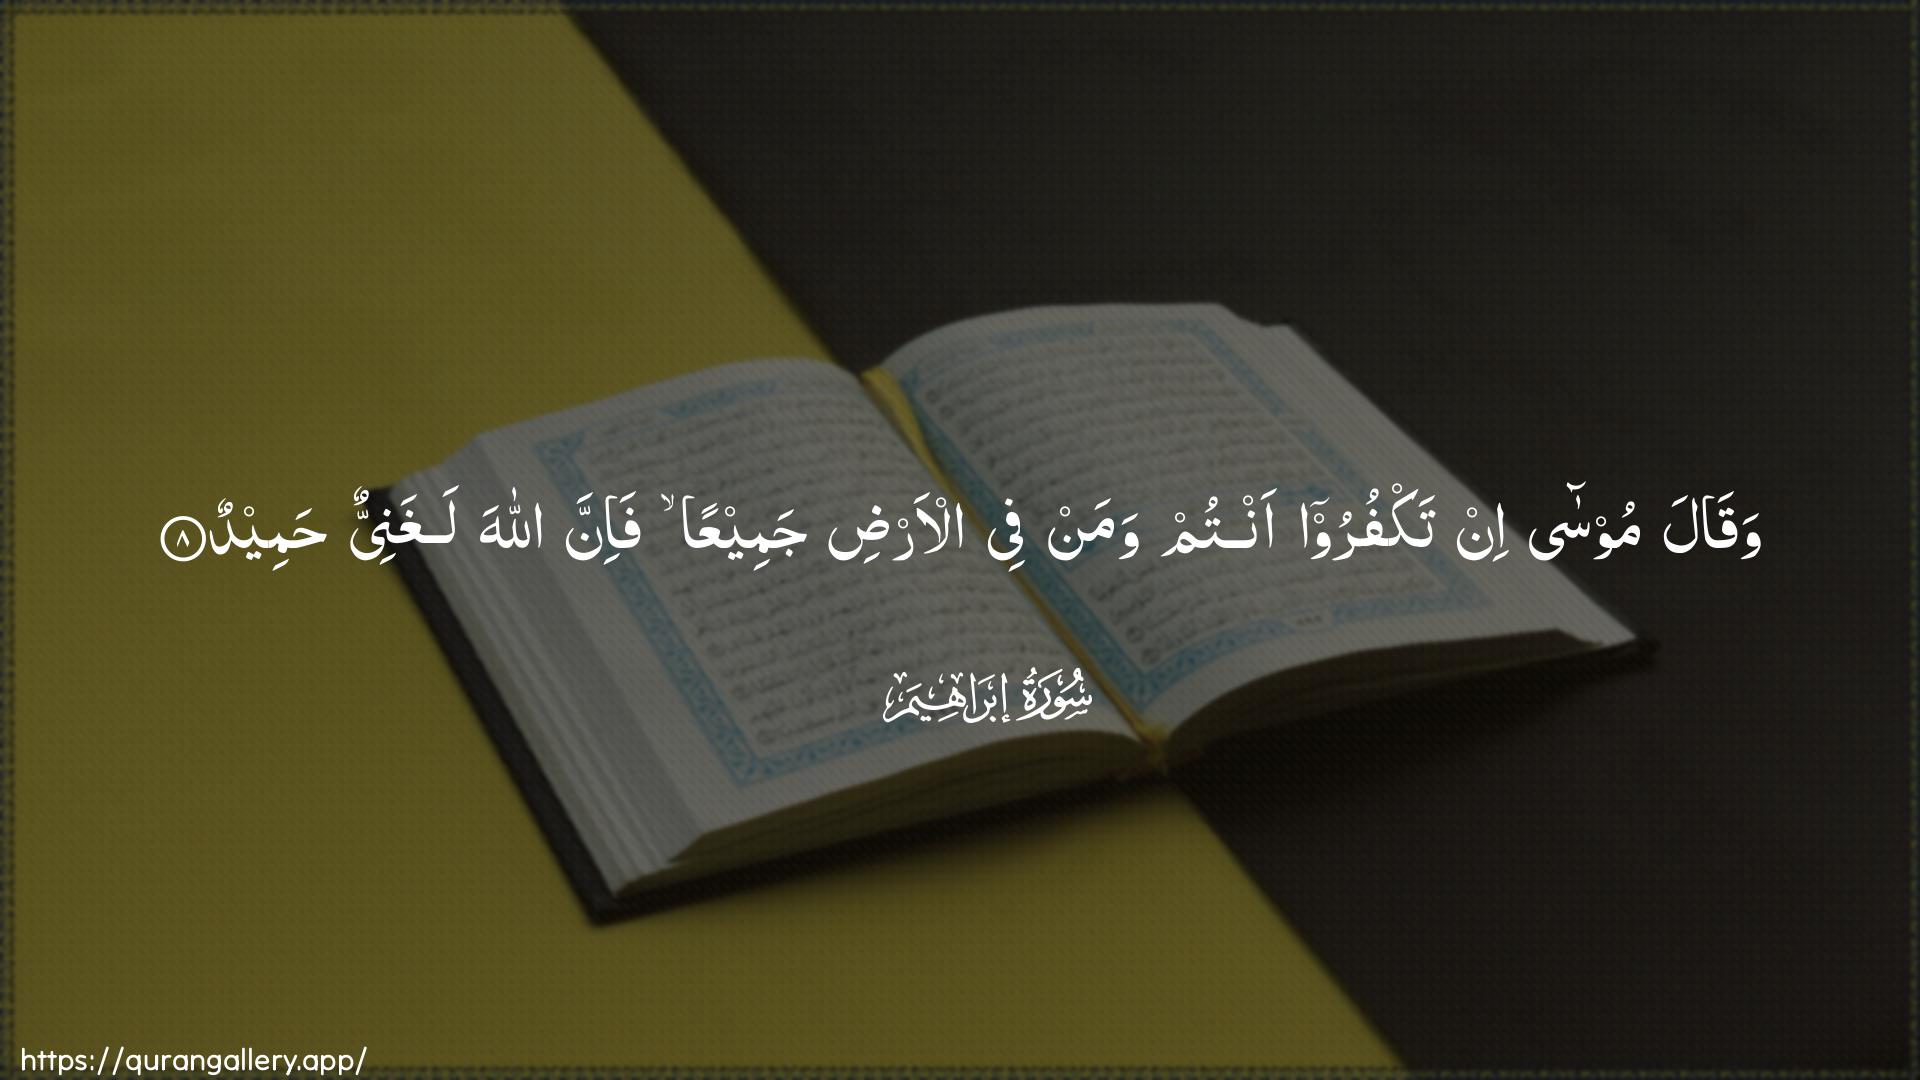 وَقَالَ مُوْسٰٓى اِنْ تَكْفُرُوْٓا اَنْـتُمْ وَمَنْ فِى الْاَرْضِ جَمِيْعًا ۙ فَاِنَّ اللّٰهَ لَـغَنِىٌّ حَمِيْدٌ ۝٨
سُوْرَةُ إِبْرَاهِيْمَ
https://qurangallery.app/